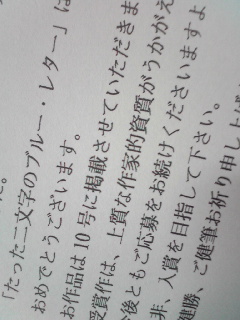 た。
「たった二文字のブルー・レター」は
おめでとうございます。
お作品は10号に掲載させていただきま
受賞作は、上質な作家的資質がうかがえ
今後ともご応募をお続けくださいますよ
非、入賞を目指して下さい。
健勝、ご健筆お祈り申し上げ